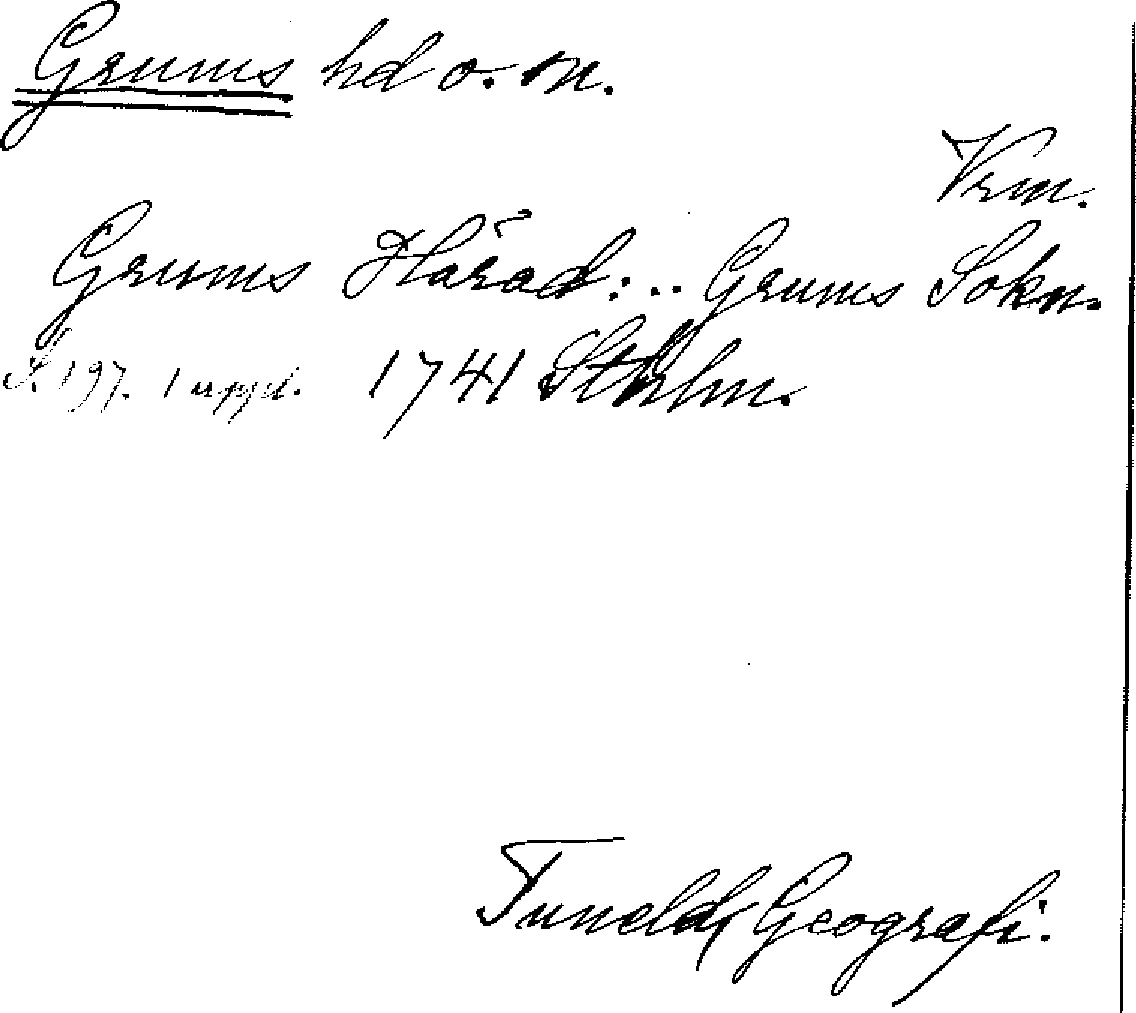 Grums hd o. sn.
Vrm.
Grums Härad: .. Grums Sokn.
S. 197. 1 uppl. 1741 Sthlm.
Tunelds Geografi.